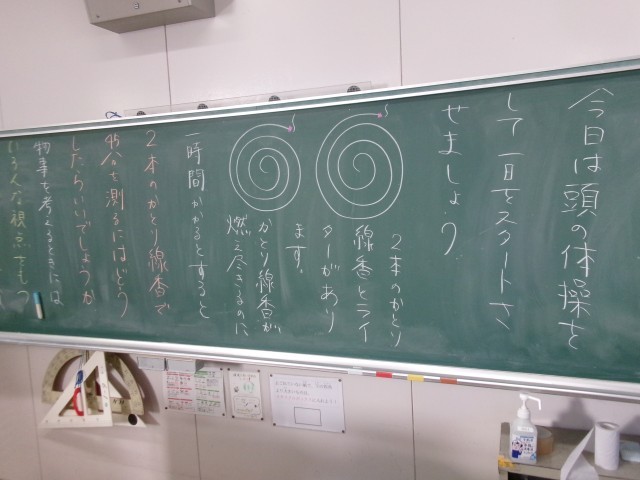 今日は頭の体操を
して一日をスタートさ
せましょう
2本のかとり
線香とライ
ターがあり
ます。
かとり線香が、
燃え尽きるのに
一時間かかるとすると
2本のかとり線香で
45分を測るにはどう
したらいいでしょうか
物事を考えるときには
いろんな視点をもつ